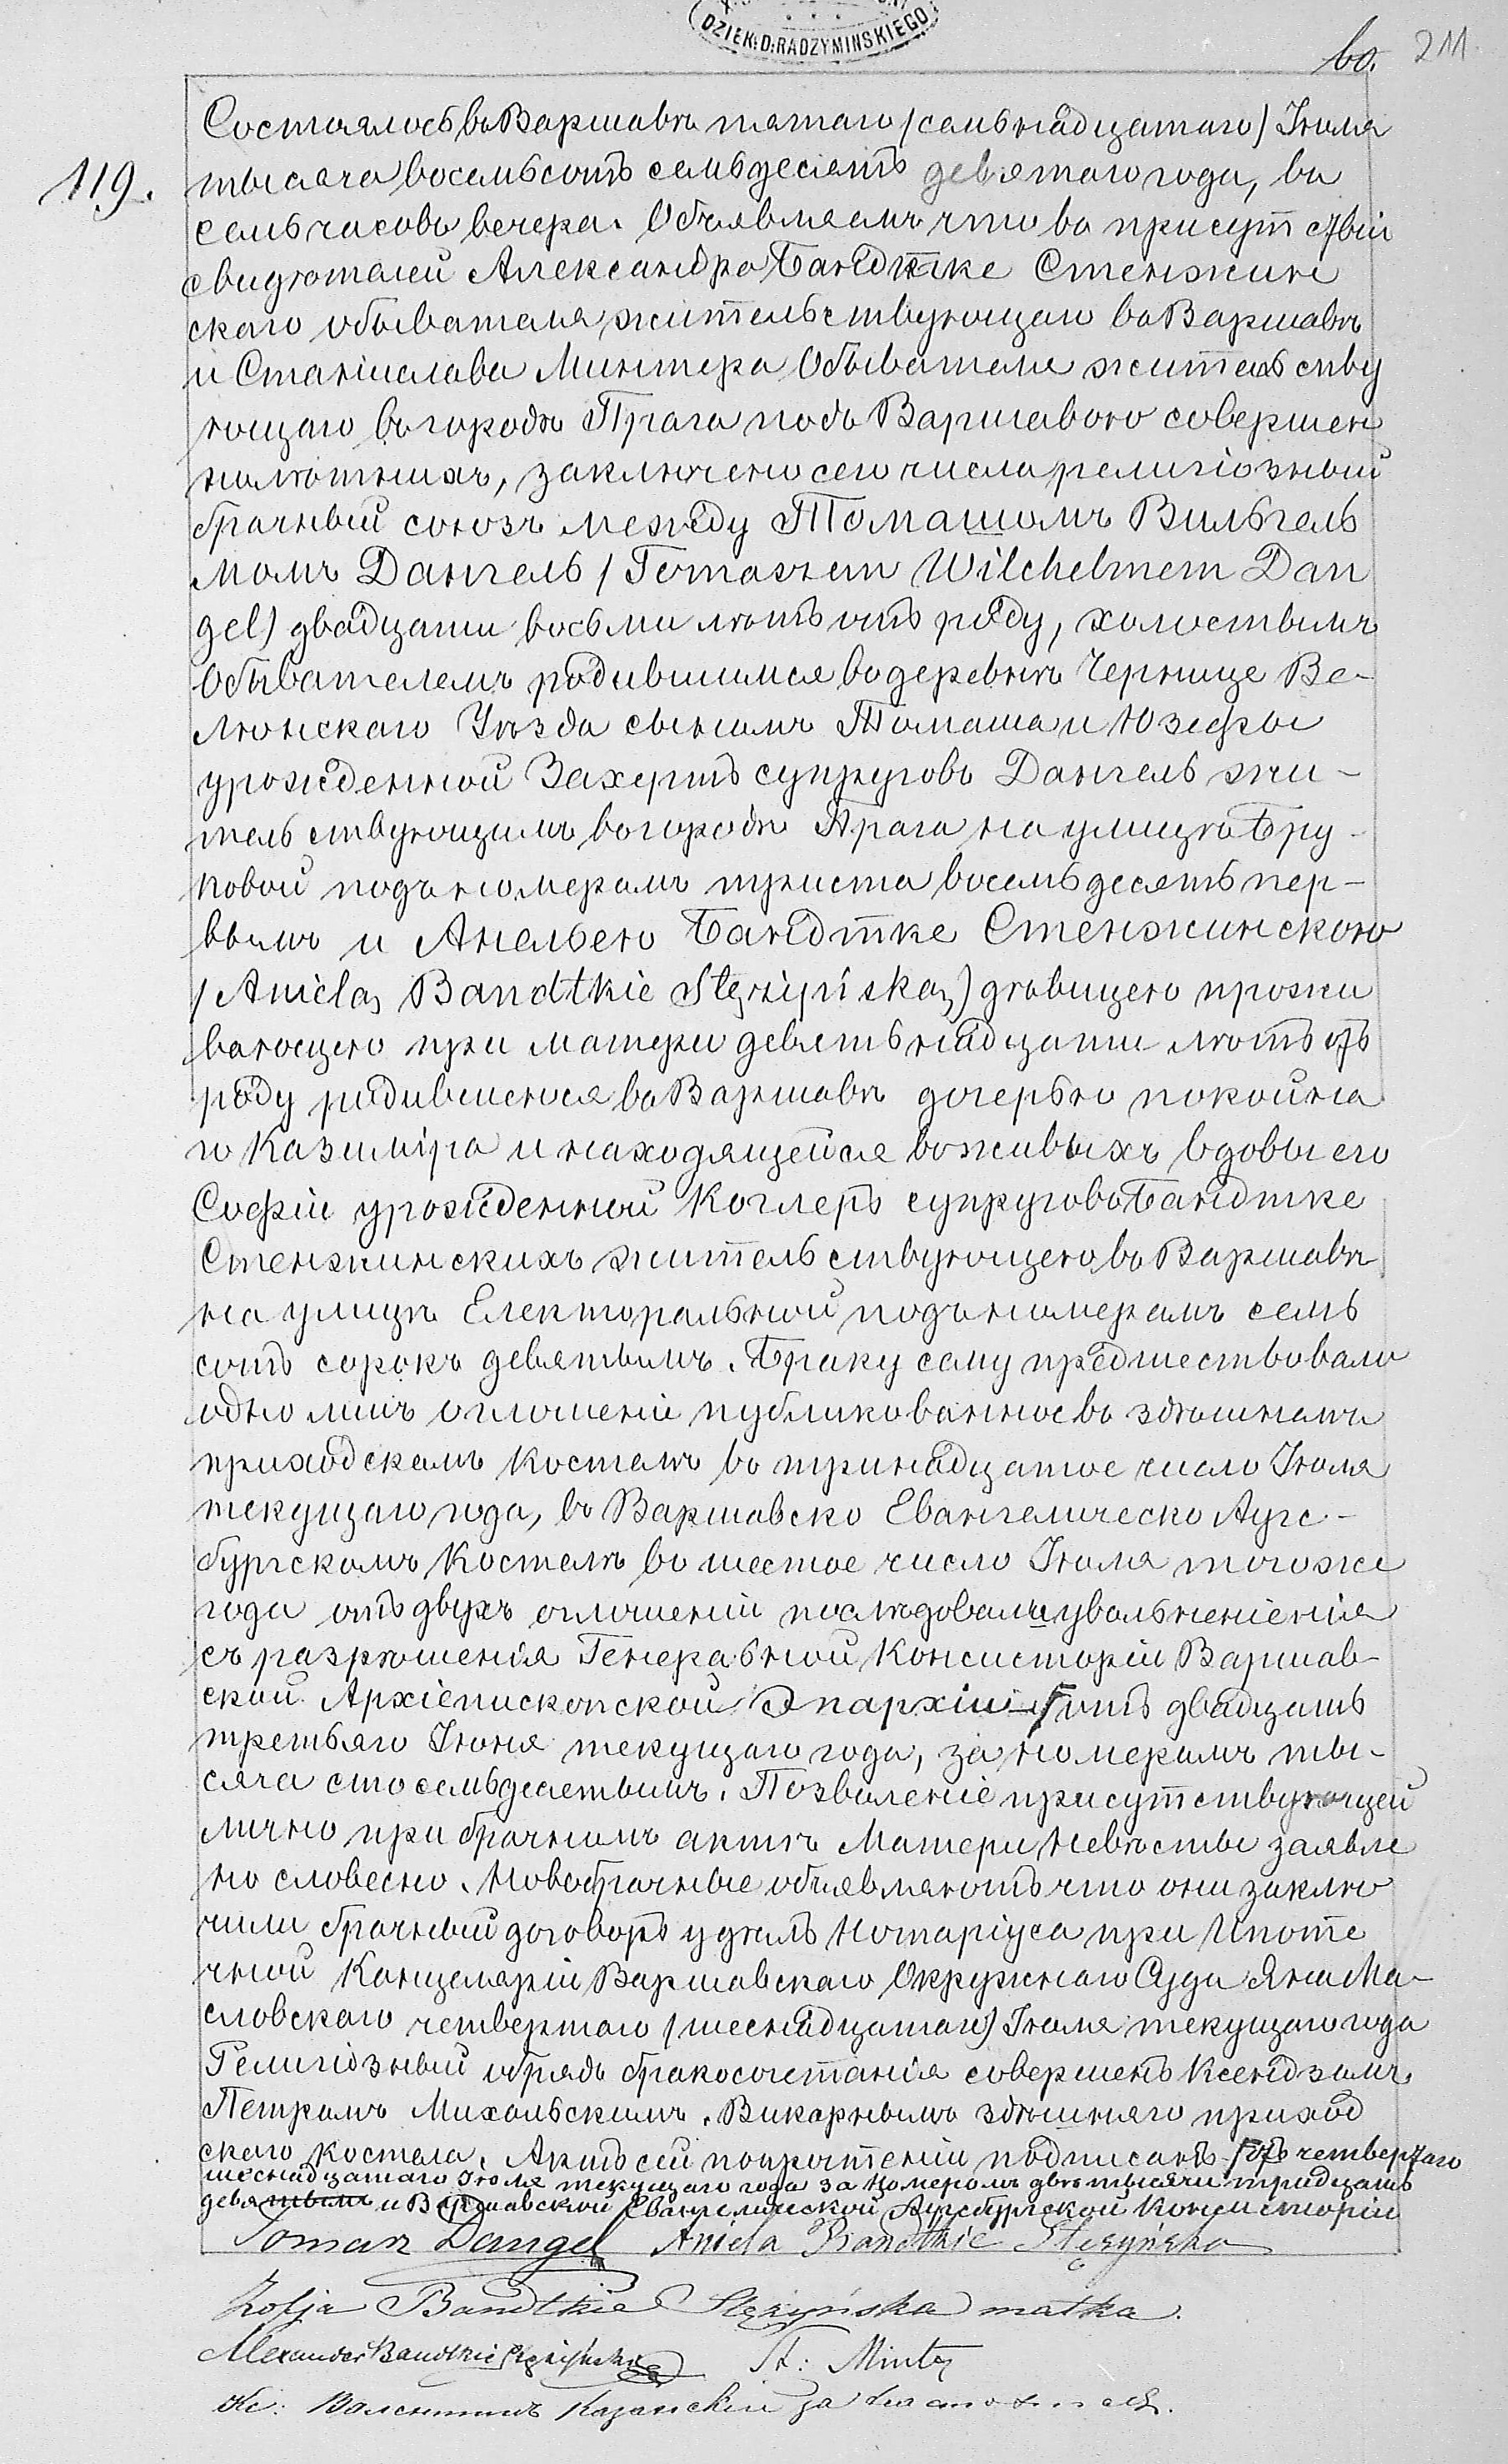 DZIEK:D:RADZYMINSKIEGO
60. 211
Состоялось въ Варшавѣ пятаго /семьнадцатаго/ Іюля
119.
тысяча восемьсотъ семьдесятъ девятаго года, въ
семь часовъ вечера. Объявляемъ что въ присутствіи
свидѣтелей Александра Бандтке Стенжин
скаго обывателя жительствующаго въ Варшавѣ
и Станислава Минтера Обывателя жительству
ющаго въ городѣ Прага подъ Варшавою совершен
нолѣтнихъ, заключено сего числа религіозный
брачный союзъ между Томашомъ Вильгель
момъ Дангель /Tomaszem Wilchelmem Dan
gel) двадцати восьми лѣтъ отъ роду, холостымъ
Обывателемъ родившимся въ деревнѣ Чернице Ве-
люнскаго Уѣзда сыномъ Томаша и Юзефы
урожденной Захертъ супруговъ Дангель жи-
тельствующимъ въ городѣ Прага на улицѣ Бру-
ковой подъ номеромъ триста восемьдесятъ пер-
вымъ и Анелею Бандтке Стенжинскою
/Anielą Bandtkie Stężyńską) дѣвицею прожи
вающею при матери девятьнадцати лѣтъ отъ
роду родившеюся въ Варшавѣ дочерью покойна
го Казиміра и находящейся въ живыхъ вдовы его
Софіи урожденной Коглеръ супруговъ Бандтке
Стенжинскихъ жительствующею въ Варшавѣ
на улицѣ Електоральной подъ номеромъ семь
сотъ сорокъ девятымъ. Браку сему предшествовало
одно лишъ оглошеніе публикованное въ здѣшнемъ
приходскомъ Костелѣ въ тринадцатое число Іюля
текущаго года, въ Варшавско Евангелическо Аугс-
бургскомъ Костелѣ въ шестое число Іюля тогоже
года отъ двухъ оглошеніи послѣдовали увольненіенія
съ разрѣшенія Генеральной Консисторіи Варшав-
ской Архіепископской Епархіи отъ двадцать
третьяго Іюня текущаго года, за номеромъ ты-
сяча сто семьдесятымъ. Позволеніе присутствующей
лично при брачномъ актѣ Матери Невѣсты заявле
но словесно. Новобрачные объявляютъ что они заклю
чили брачный договоръ у дѣлъ Нотаріуса при Ипоте
чной Канцеляріи Варшавскаго Окружнаго Суда Яна Ма-
словскаго четвертаго /шеснадцатаго/ Іюля текущаго года
Религіозный обрядъ бракосочетанія совершенъ Ксендзомъ
Петромъ Михальскимъ. Викарнымъ здѣшняго приход
скаго костела. Актъ сей попрочтеніи подписанъ отъ четвертаго
шеснадцатаго Іюля текущаго года за Номеромъ двѣ тысячи тридцать
девятымъ и Варшавской Евангелической Аугсбургской Консисторіи
Tomasz Dangel Aniela Bandtkie Stężyńska
Zofja Bandtkie Stężyńska matka.
Alexander Bandtkie Stężyński St: Minter
Кс: Валентинъ Казанскій за